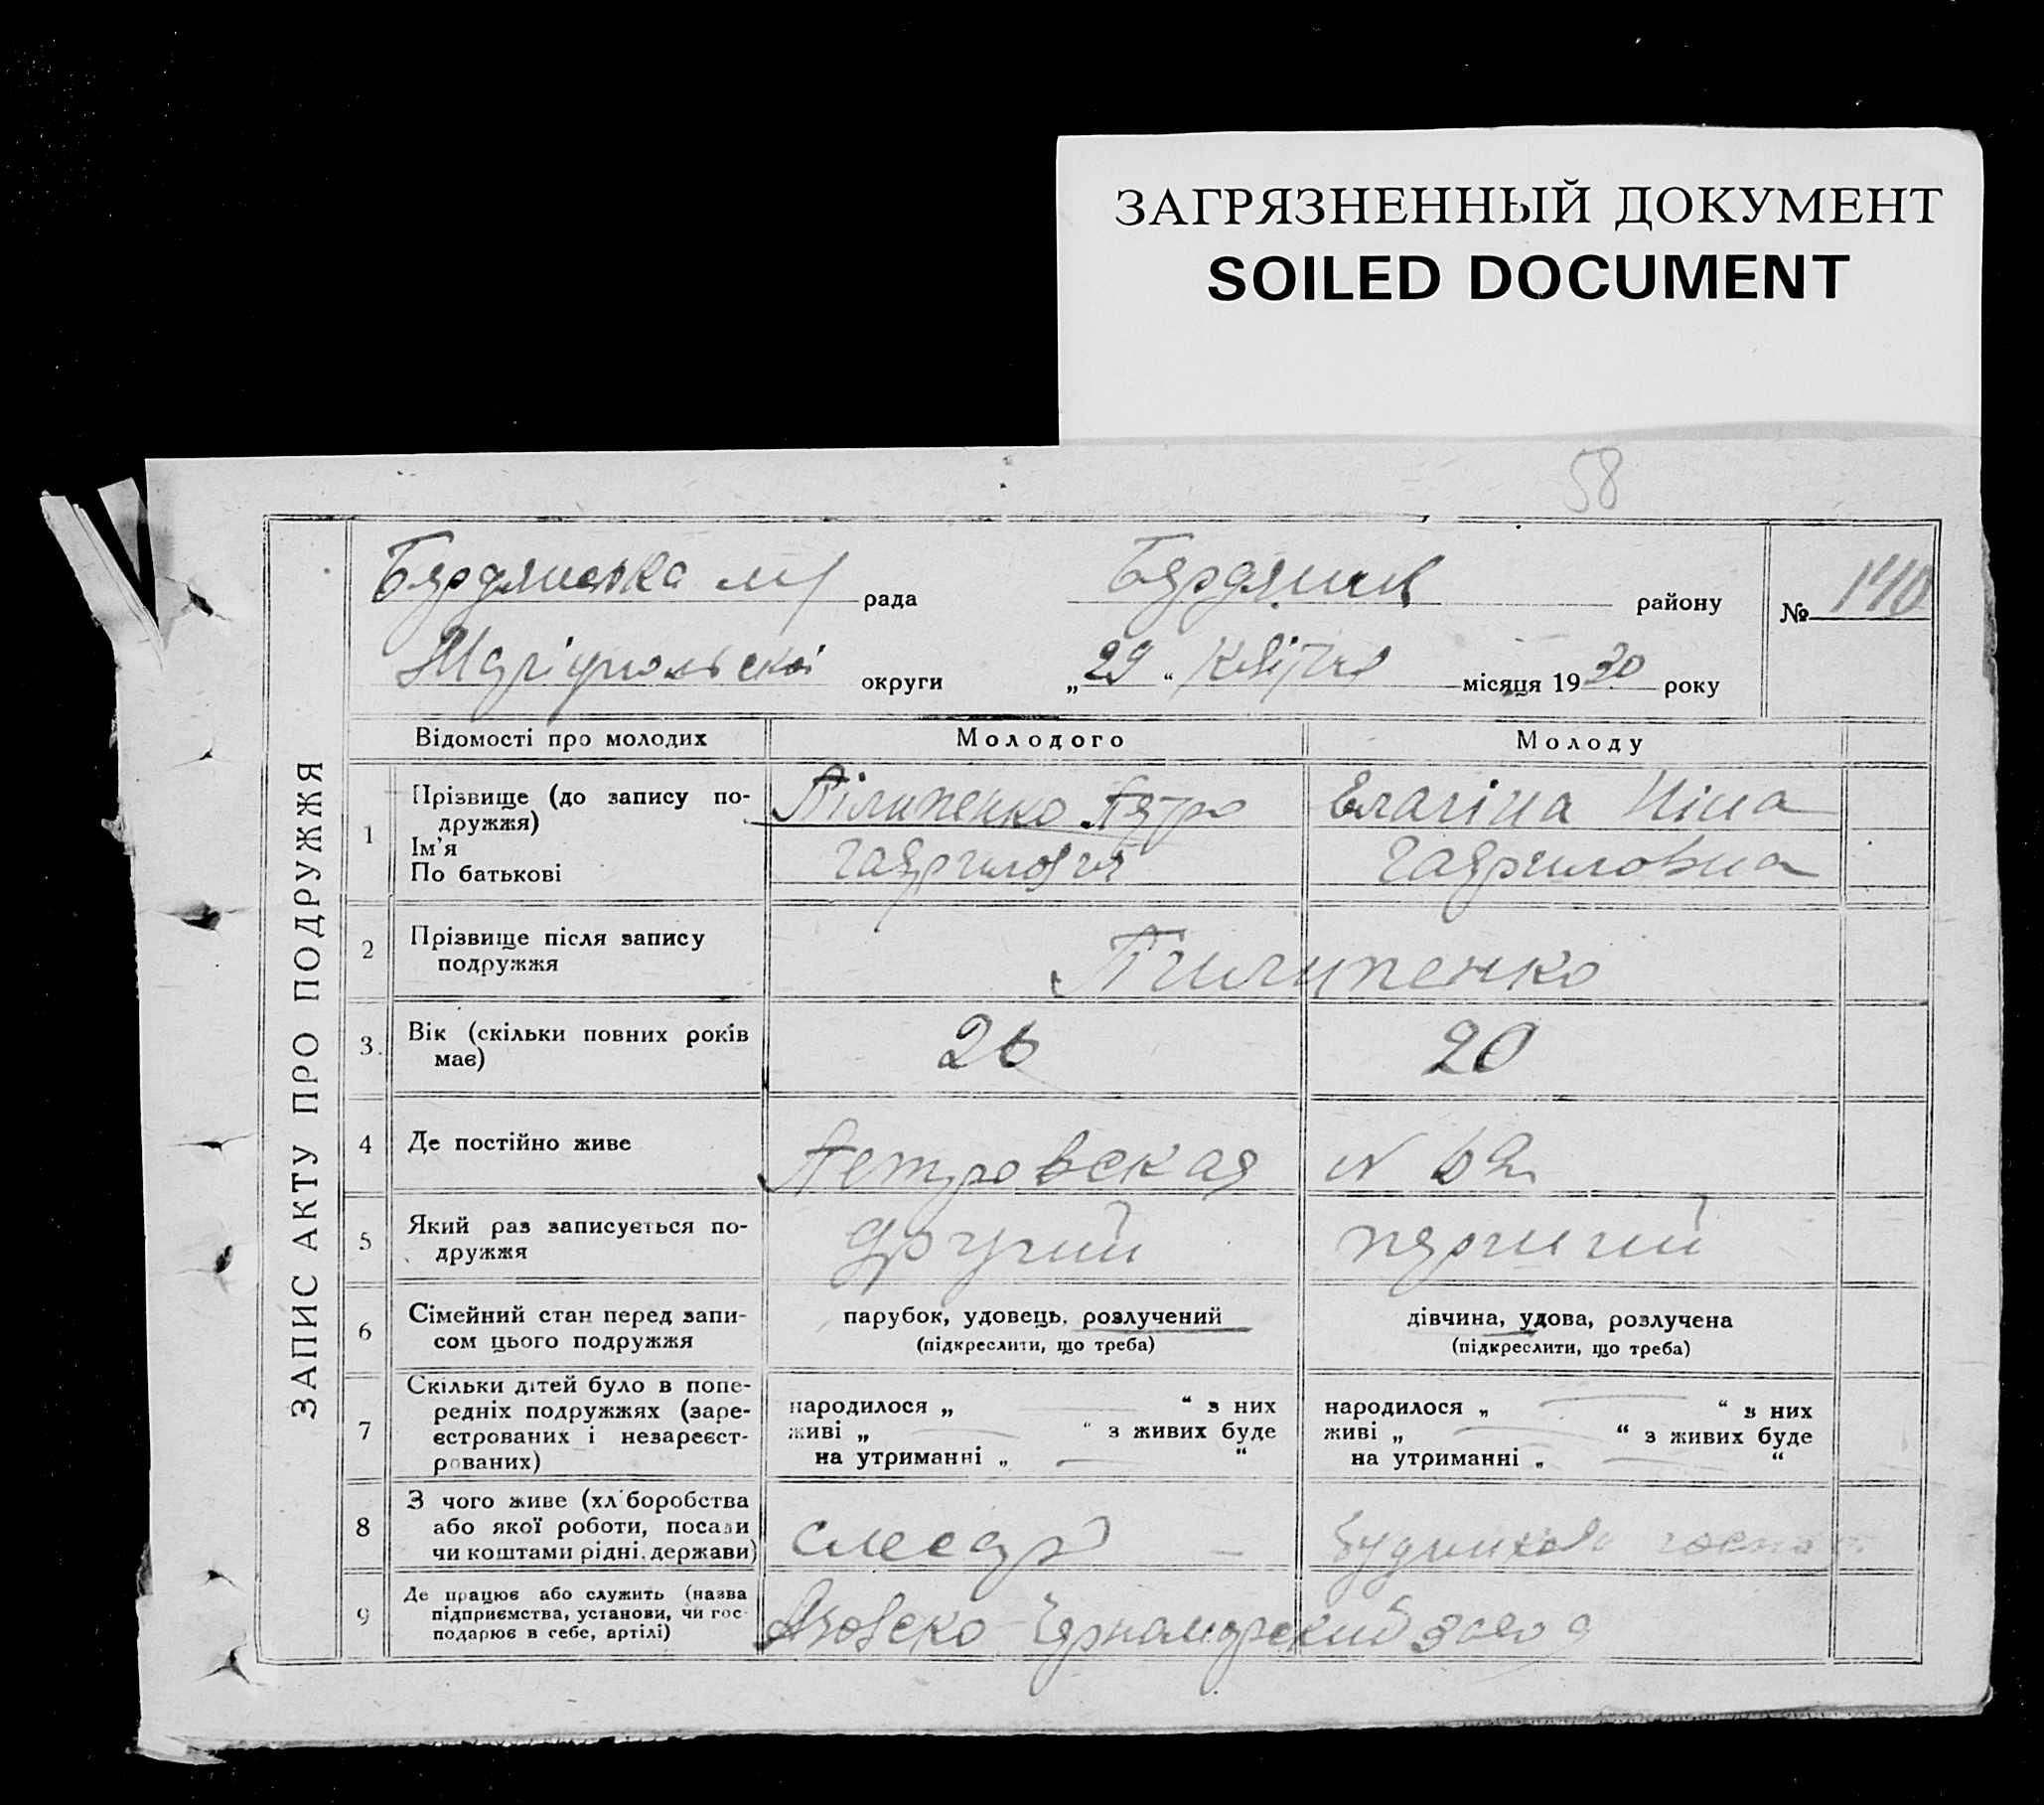 ЗАГРЯЗНЕННЫЙ ДОКУМЕНТ
SOILED DOCUMENT
58
Бердянська м/ рада Бердянськ району № 140
Маріупольскої округи „29“ Квітня місяця 1930 року
ЗАПИС АКТУ ПРО ПОДРУЖЖЯ
Відомості про молодих Молодого Молоду
1 Прізвище (до запису по-
дружжя)
Ім'я
По батькові
Піліпенко Петро
Гаврилович
Елагіна Ніна
Гавриловна
2 Прізвище після запису
подружжя
Пилипенко
3. Вік (скільки повних років
має)
26 20
4 Де постійно живе Петровская № 62
5 Який раз записується по-
дружжя
другий перший
6 Сімейний стан перед запи-
сом цього подружжя
парубок, удовець, розлучений
(підкреслити, що треба)
дівчина, удова, розлучена
(підкреслити, що треба)
7 Скільки дітей було в попе-
редніх подружжях (заре-
єстрованих і незареєст-
рованих)
народилося „ — “ з них
живі „ — “ з живих буде
на утриманні „ — “
народилося „ — “ з них
живі „ — “ з живих буде
на утриманні „ — “
8 З чого живе (хліборобства
або якої роботи, посади
чи коштами рідні, держави)
слесар —
9 Де працює або служить (назва
підприємства, установи, чи гос-
подарює в себе, артілі)
Азовско Черноморский завод